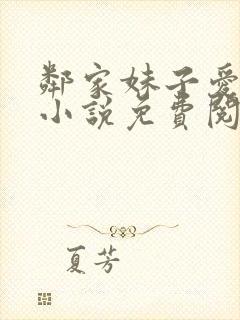 鄰家妹子愛
小說免費閱
夏芳